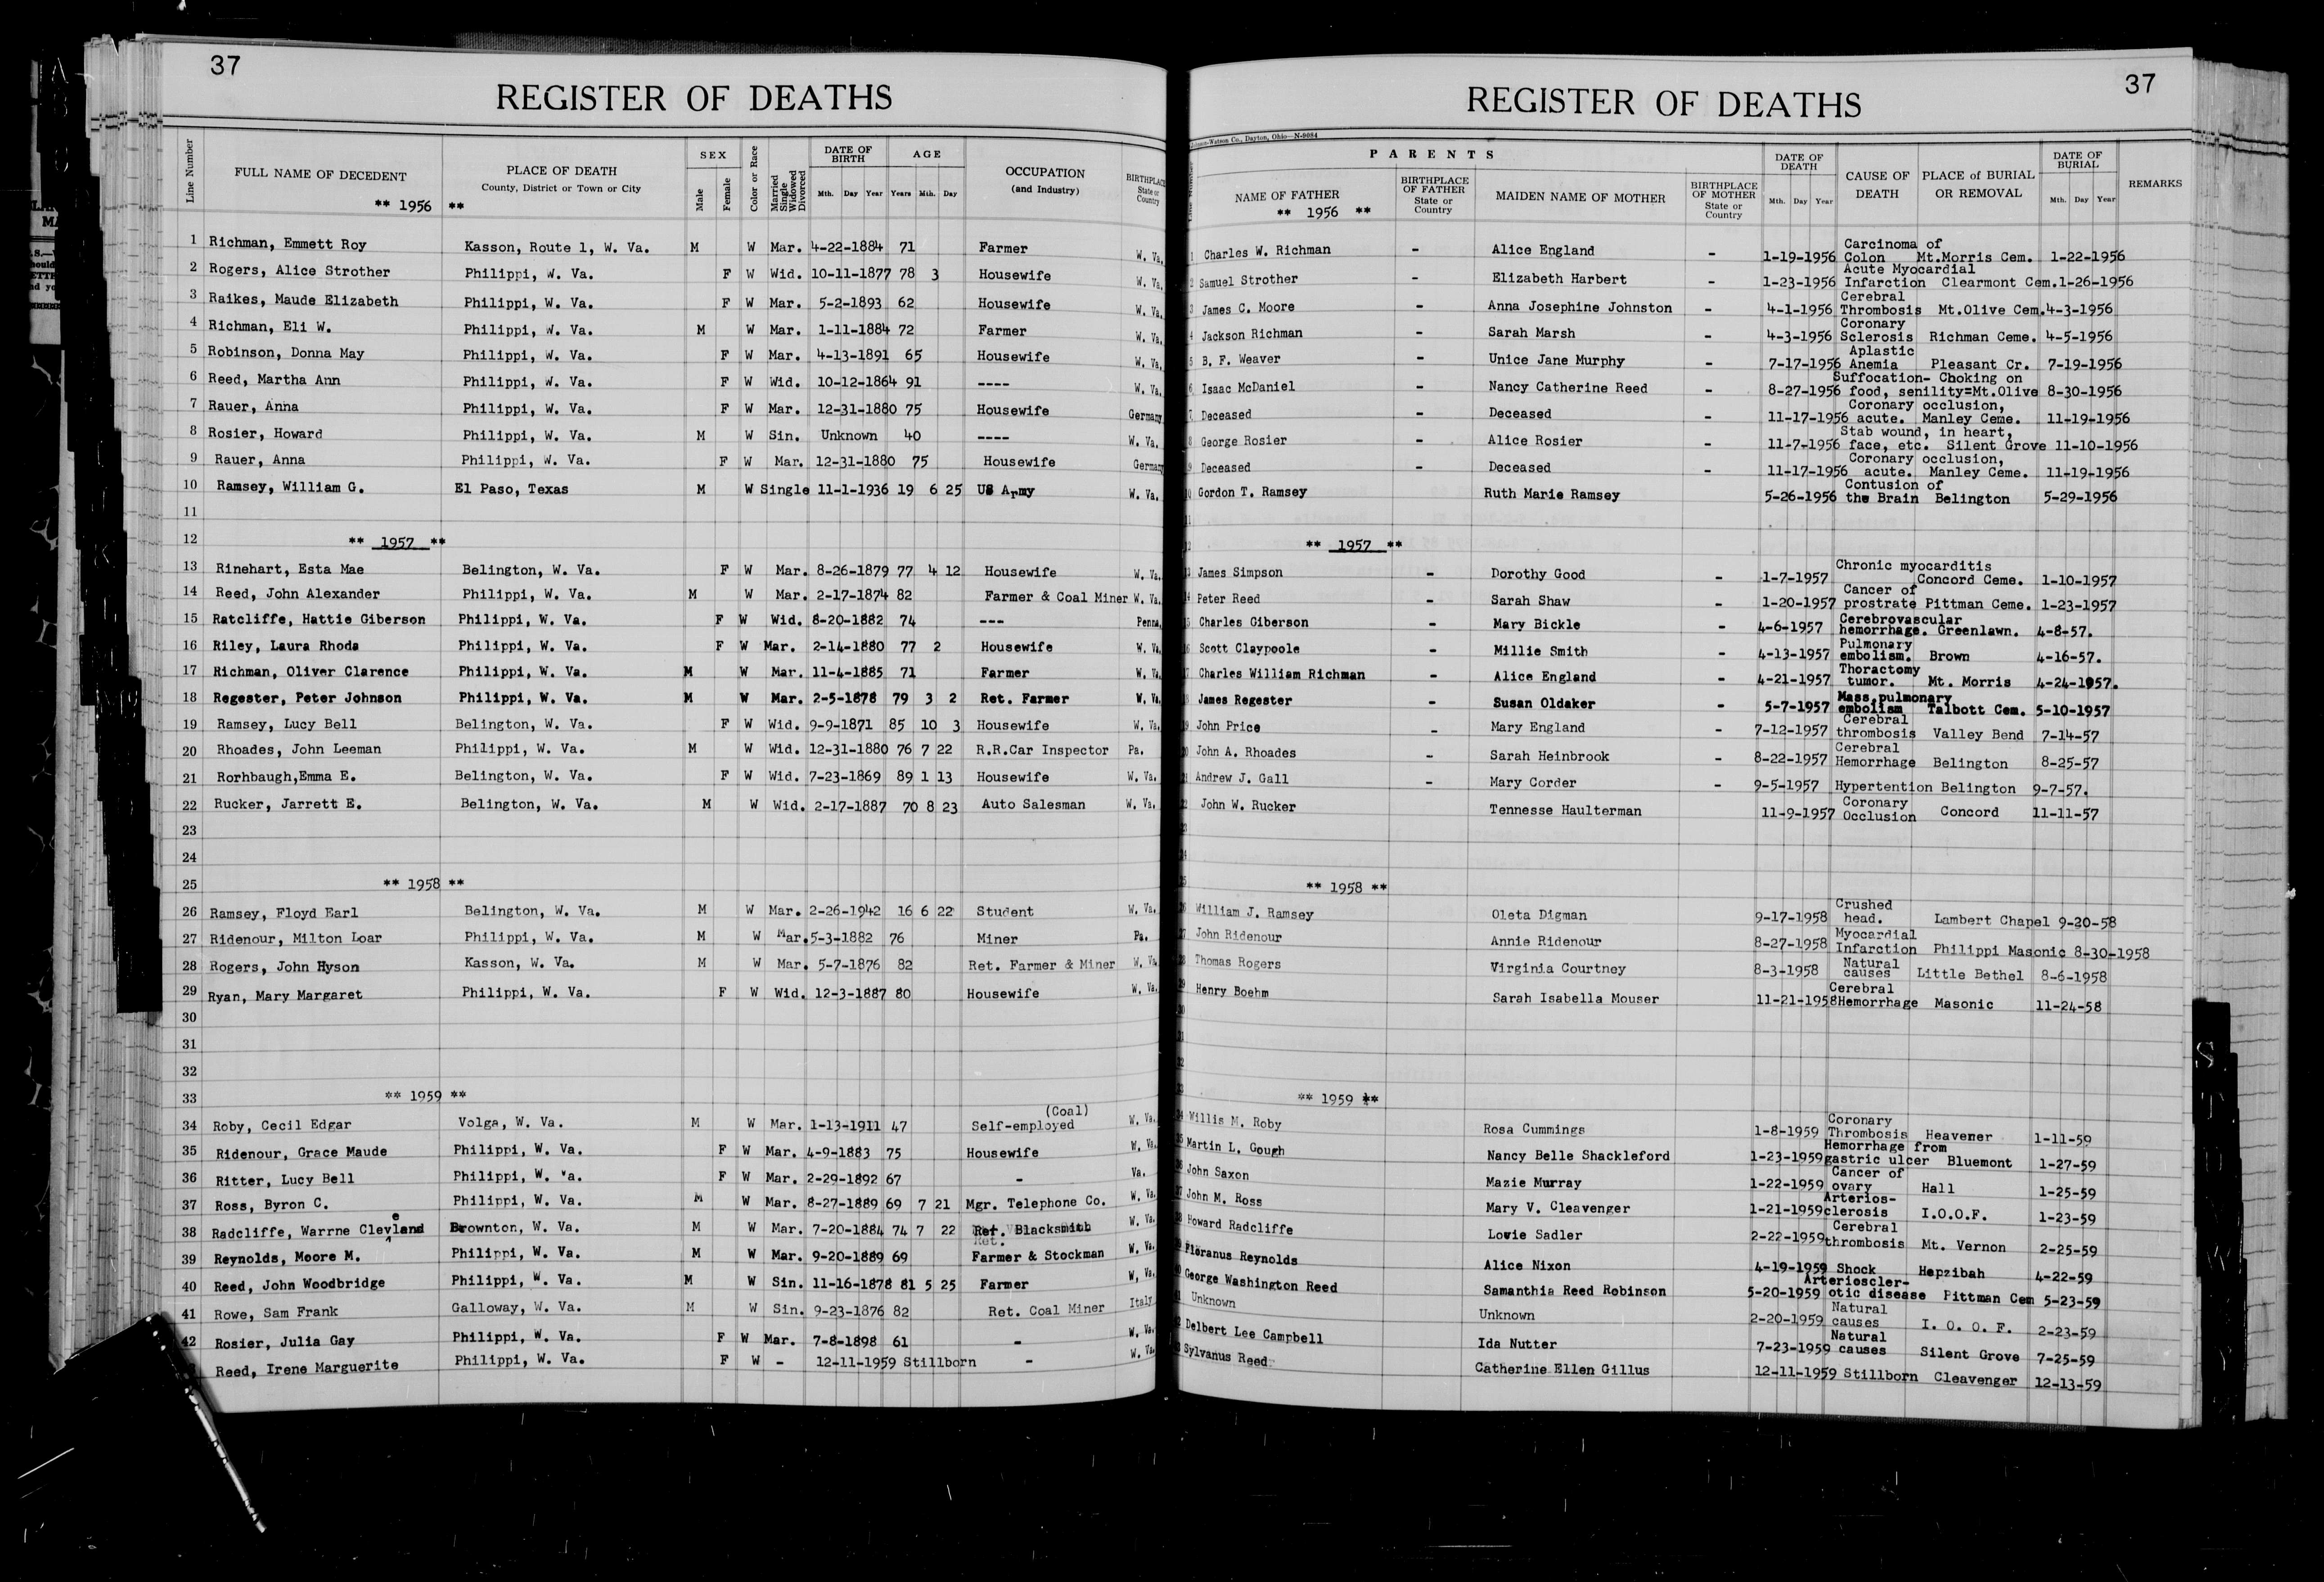 37
REGISTER OF DEATHS
Line Number FULL NAME OF DECEDENT PLACE OF DEATH County, District or Town or City SEX Male Female Color or Race Married Single Widowed Divorced DATE OF BIRTH Mth. Day Year AGE Years Mth. Day OCCUPATION (and Industry) BIRTHPLACE State or Country
** 1956 **
1 Richman, Emmett Roy Kasson, Route 1, W. Va. M W Mar. 4-22-1884 71 Farmer W. Va.
2 Rogers, Alice Strother Philippi, W. Va. F W Wid. 10-11-1877 78 3 Housewife W. Va.
3 Raikes, Maude Elizabeth Philippi, W. Va. F W Mar. 5-2-1893 62 Housewife W. Va.
4 Richman, Eli W. Philippi, W. Va. M W Mar. 1-11-1884 72 Farmer W. Va.
5 Robinson, Donna May Philippi, W. Va. F W Mar. 4-13-1891 65 Housewife W. Va.
6 Reed, Martha Ann Philippi, W. Va. F W Wid. 10-12-1864 91 ---- W. Va.
7 Rauer, Anna Philippi, W. Va. F W Mar. 12-31-1880 75 Housewife Germany
8 Rosier, Howard Philippi, W. Va. M W Sin. Unknown 40 ---- W. Va.
9 Rauer, Anna Philippi, W. Va. F W Mar. 12-31-1880 75 Housewife Germany
10 Ramsey, William G. El Paso, Texas M W Single 11-1-1936 19 6 25 US Army W. Va.
11
12 ** 1957 **
13 Rinehart, Esta Mae Belington, W. Va. F W Mar. 8-26-1879 77 4 12 Housewife W. Va.
14 Reed, John Alexander Philippi, W. Va. M W Mar. 2-17-1874 82 Farmer & Coal Miner W. Va.
15 Ratcliffe, Hattie Giberson Philippi, W. Va. F W Wid. 8-20-1882 74 --- Penna.
16 Riley, Laura Rhoda Philippi, W. Va. F W Mar. 2-14-1880 77 2 Housewife W. Va.
17 Richman, Oliver Clarence Philippi, W. Va. M W Mar. 11-4-1885 71 Farmer W. Va.
18 Regester, Peter Johnson Philippi, W. Va. M W Mar. 2-5-1878 79 3 2 Ret. Farmer W. Va.
19 Ramsey, Lucy Bell Belington, W. Va. F W Wid. 9-9-1871 85 10 3 Housewife W. Va.
20 Rhoades, John Leeman Philippi, W. Va. M W Wid. 12-31-1880 76 7 22 R.R.Car Inspector Pa.
21 Rorhbaugh,Emma E. Belington, W. Va. F W Wid. 7-23-1869 89 1 13 Housewife W. Va.
22 Rucker, Jarrett E. Belington, W. Va. M W Wid. 2-17-1887 70 8 23 Auto Salesman W. Va.
23
24
25 ** 1958 **
26 Ramsey, Floyd Earl Belington, W. Va. M W Mar. 2-26-1942 16 6 22 Student W. Va.
27 Ridenour, Milton Loar Philippi, W. Va. M W Mar. 5-3-1882 76 Miner Pa.
28 Rogers, John Hyson Kasson, W. Va. M W Mar. 5-7-1876 82 Ret. Farmer & Miner W. Va.
29 Ryan, Mary Margaret Philippi, W. Va. F W Wid. 12-3-1887 80 Housewife W. Va.
30
31
32
33 ** 1959 **
34 Roby, Cecil Edgar Volga, W. Va. M W Mar. 1-13-1911 47 (Coal) Self-employed W. Va.
35 Ridenour, Grace Maude Philippi, W. Va. F W Mar. 4-9-1883 75 Housewife W. Va.
36 Ritter, Lucy Bell Philippi, W. Va. F W Mar. 2-29-1892 67 - Va.
37 Ross, Byron C. Philippi, W. Va. M W Mar. 8-27-1889 69 7 21 Mgr. Telephone Co. W. Va.
38 Radcliffe, Warrne Cleveland Brownton, W. Va. M W Mar. 7-20-1884 74 7 22 Ret. Blacksmith W. Va.
39 Reynolds, Moore M. Philippi, W. Va. M W Mar. 9-20-1889 69 Ret. Farmer & Stockman W. Va.
40 Reed, John Woodbridge Philippi, W. Va. M W Sin. 11-16-1878 81 5 25 Farmer W. Va.
41 Rowe, Sam Frank Galloway, W. Va. M W Sin. 9-23-1876 82 Ret. Coal Miner Italy
42 Rosier, Julia Gay Philippi, W. Va. F W Mar. 7-8-1898 61 - W. Va.
Reed, Irene Marguerite Philippi, W. Va. F W - 12-11-1959 Stillborn - W. Va.
37
REGISTER OF DEATHS
Co., Dayton, Ohio—N-9084
PARENTS NAME OF FATHER BIRTHPLACE OF FATHER State or Country MAIDEN NAME OF MOTHER BIRTHPLACE OF MOTHER State or Country DATE OF DEATH Mth. Day Year CAUSE OF DEATH PLACE of BURIAL OR REMOVAL DATE OF BURIAL Mth. Day Year REMARKS
** 1956 **
1 Charles W. Richman - Alice England - 1-19-1956 Carcinoma of Colon Mt.Morris Cem. 1-22-1956
2 Samuel Strother - Elizabeth Harbert - 1-23-1956 Acute Myocardial Infarction Clearmont Cem. 1-26-1956
3 James C. Moore - Anna Josephine Johnston - 4-1-1956 Cerebral Thrombosis Mt.Olive Cem. 4-3-1956
4 Jackson Richman - Sarah Marsh - 4-3-1956 Coronary Sclerosis Richman Ceme. 4-5-1956
5 B. F. Weaver - Unice Jane Murphy - 7-17-1956 Aplastic Anemia Pleasant Cr. 7-19-1956
6 Isaac McDaniel - Nancy Catherine Reed - 8-27-1956 Suffocation- Choking on food, senility=Mt.Olive 8-30-1956
7 Deceased - Deceased - 11-17-1956 Coronary occlusion, acute. Manley Ceme. 11-19-1956
8 George Rosier - Alice Rosier - 11-7-1956 Stab wound, in heart, face, etc. Silent Grove 11-10-1956
9 Deceased - Deceased - 11-17-1956 Coronary occlusion, acute. Manley Ceme. 11-19-1956
10 Gordon T. Ramsey Ruth Marie Ramsey 5-26-1956 Contusion of the Brain Belington 5-29-1956
11
12 ** 1957 **
13 James Simpson - Dorothy Good - 1-7-1957 Chronic myocarditis Concord Ceme. 1-10-1957
14 Peter Reed - Sarah Shaw - 1-20-1957 Cancer of prostrate Pittman Ceme. 1-23-1957
15 Charles Giberson - Mary Bickle - 4-6-1957 Cerebrovascular hemorrhage. Greenlawn. 4-8-57.
16 Scott Claypoole - Millie Smith - 4-13-1957 Pulmonary embolism. Brown 4-16-57.
17 Charles William Richman - Alice England - 4-21-1957 Thoractomy tumor. Mt. Morris 4-24-1957.
18 James Regester - Susan Oldaker - 5-7-1957 Mass.pulmonary embolism Talbott Cem. 5-10-1957
19 John Price - Mary England - 7-12-1957 Cerebral thrombosis Valley Bend 7-14-57
20 John A. Rhoades - Sarah Heinbrook - 8-22-1957 Cerebral Hemorrhage Belington 8-25-57
21 Andrew J. Gall - Mary Corder - 9-5-1957 Hypertention Belington 9-7-57.
22 John W. Rucker Tennesse Haulterman 11-9-1957 Coronary Occlusion Concord 11-11-57
23
24
25 ** 1958 **
26 William J. Ramsey Oleta Digman 9-17-1958 Crushed head. Lambert Chapel 9-20-58
27 John Ridenour Annie Ridenour 8-27-1958 Myocardial Infarction Philippi Masonic 8-30-1958
28 Thomas Rogers Virginia Courtney 8-3-1958 Natural causes Little Bethel 8-6-1958
29 Henry Boehm Sarah Isabella Mouser 11-21-1958 Cerebral Hemorrhage Masonic 11-24-58
30
31
32
33 ** 1959 **
34 Willis M. Roby Rosa Cummings 1-8-1959 Coronary Thrombosis Heavener 1-11-59
35 Martin L. Gough Nancy Belle Shackleford 1-23-1959 Hemorrhage from gastric ulcer Bluemont 1-27-59
36 John Saxon Mazie Murray 1-22-1959 Cancer of ovary Hall 1-25-59
37 John M. Ross Mary V. Cleavenger 1-21-1959 Arterios- clerosis I.O.O.F. 1-23-59
38 Howard Radcliffe Lovie Sadler 2-22-1959 Cerebral thrombosis Mt. Vernon 2-25-59
39 Floranus Reynolds Alice Nixon 4-19-1959 Shock Hepzibah 4-22-59
40 George Washington Reed Samanthia Reed Robinson 5-20-1959 Arterioscler- otic disease Pittman Cem 5-23-59
41 Unknown Unknown 2-20-1959 Natural causes I. O. O. F. 2-23-59
42 Delbert Lee Campbell Ida Nutter 7-23-1959 Natural causes Silent Grove 7-25-59
Sylvanus Reed Catherine Ellen Gillus 12-11-1959 Stillborn Cleavenger 12-13-59